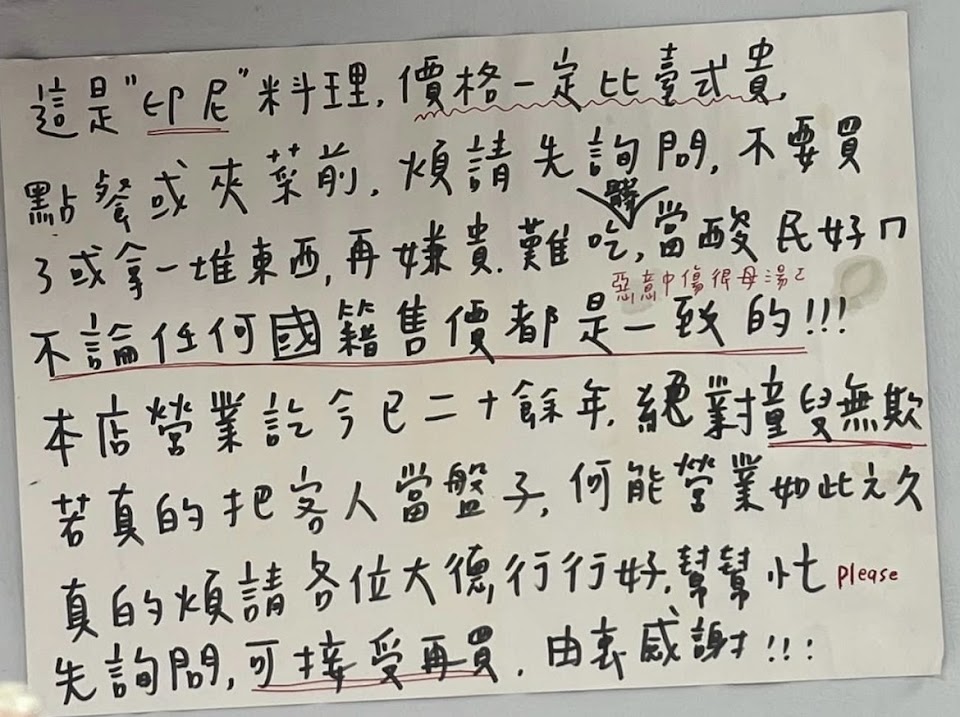 這是"印尼"料理,價格一定比臺式貴,
點餐或夾菜前,煩請先詢問,不要買
了或拿一堆東西,再嫌貴.難吃,髒,當酸民好ㄇ
惡意中傷很母湯ㄛ
不論任何國籍售價都是一致的!!!
本店營業訖今已二十餘年,絕對童叟無欺
若真的把客人當盤子,何能營業如此之久
真的煩請各位大德,行行好,幫幫忙 please
先詢問,可接受再買.由衷感謝!!!